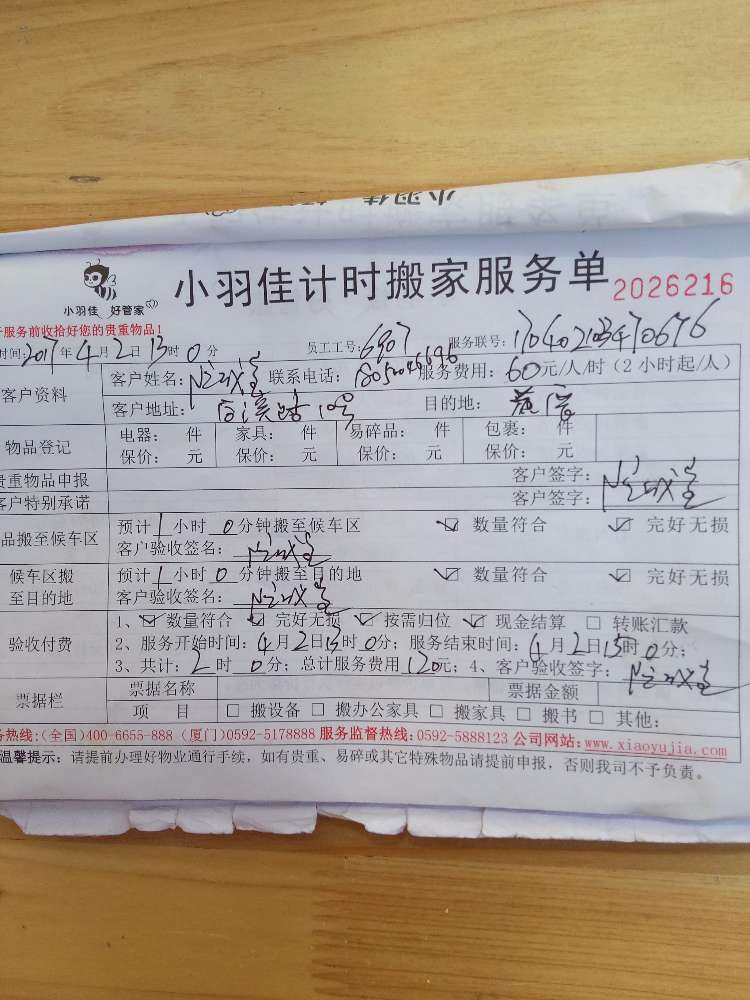 小羽佳
小羽佳 好管家
小羽佳计时搬家服务单 2026216
服务前收拾好您的贵重物品!
时间:2017年4月2日13时0分 员工工号:6907 服务联号:170402103470676
客户资料 客户姓名: 联系电话: 服务费用:60元/人/时(2小时起/人)
客户地址: 目的地:
物品登记 电器: 件 家具: 件 易碎品: 件 包裹: 件
保价: 元 保价: 元 保价: 元 保价: 元
贵重物品申报 客户签字:
客户特别承诺 客户签字:
品搬至候车区 预计1小时0分钟搬至候车区 ☑ 数量符合 ☑ 完好无损
客户验收签名:
候车区搬至目的地 预计1小时0分钟搬至目的地 ☑ 数量符合 ☑ 完好无损
客户验收签名:
验收付费 1、☑ 数量符合 ☑ 完好无损 ☑ 按需归位 ☑ 现金结算 □ 转账汇款
2、服务开始时间:4月2日13时0分;服务结束时间:4月2日15时0分;
3、共计:2时0分;总计服务费用120元;4、客户验收签字:
票据栏 票据名称 票据金额
项 目 □ 搬设备 □ 搬办公家具 □ 搬家具 □ 搬书 □ 其他:
务热线:(全国)400-6655-888 (厦门)0592-5178888 服务监督热线:0592-5888123 公司网站:www.xiaoyujia.com
温馨提示:请提前办理好物业通行手续,如有贵重、易碎或其它特殊物品请提前申报,否则我司不予负责。